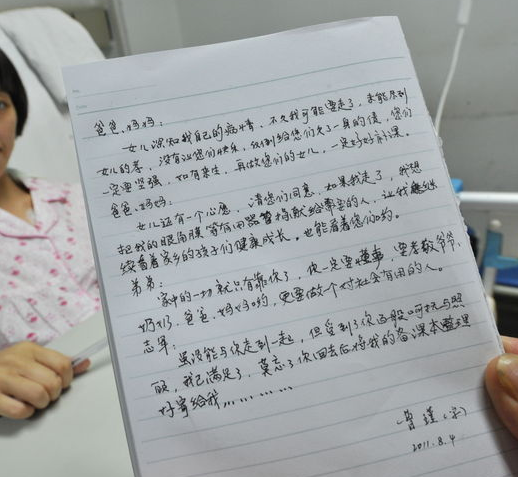 爸爸、妈妈：
女儿深知我自己的病情，不久我可能要走了，未能尽到
女儿的孝，没有让您们快乐，反倒给您们欠了一身的债，您们
一定要坚强，如有来生，再做您们的女儿，一定好好补课。
爸爸、妈妈：
女儿还有一个心愿，请您们同意，如果我走了，我想
把我的眼角膜等有用器官捐献给需要的人，让我继
续看着家乡的孩子们健康成长。也能看着您们的。
弟弟：
家中的一切就只有靠你了，你一定要懂事，要孝敬爷爷、
奶奶、爸爸、妈妈哟，更要做个对社会有用的人。
志军：
虽没能与你走到一起，但受到了你的照
顾，我已满足了，莫忘了你回去后将我的备课本整理
好寄给我…………
曾瑾（字）
2011.8.4